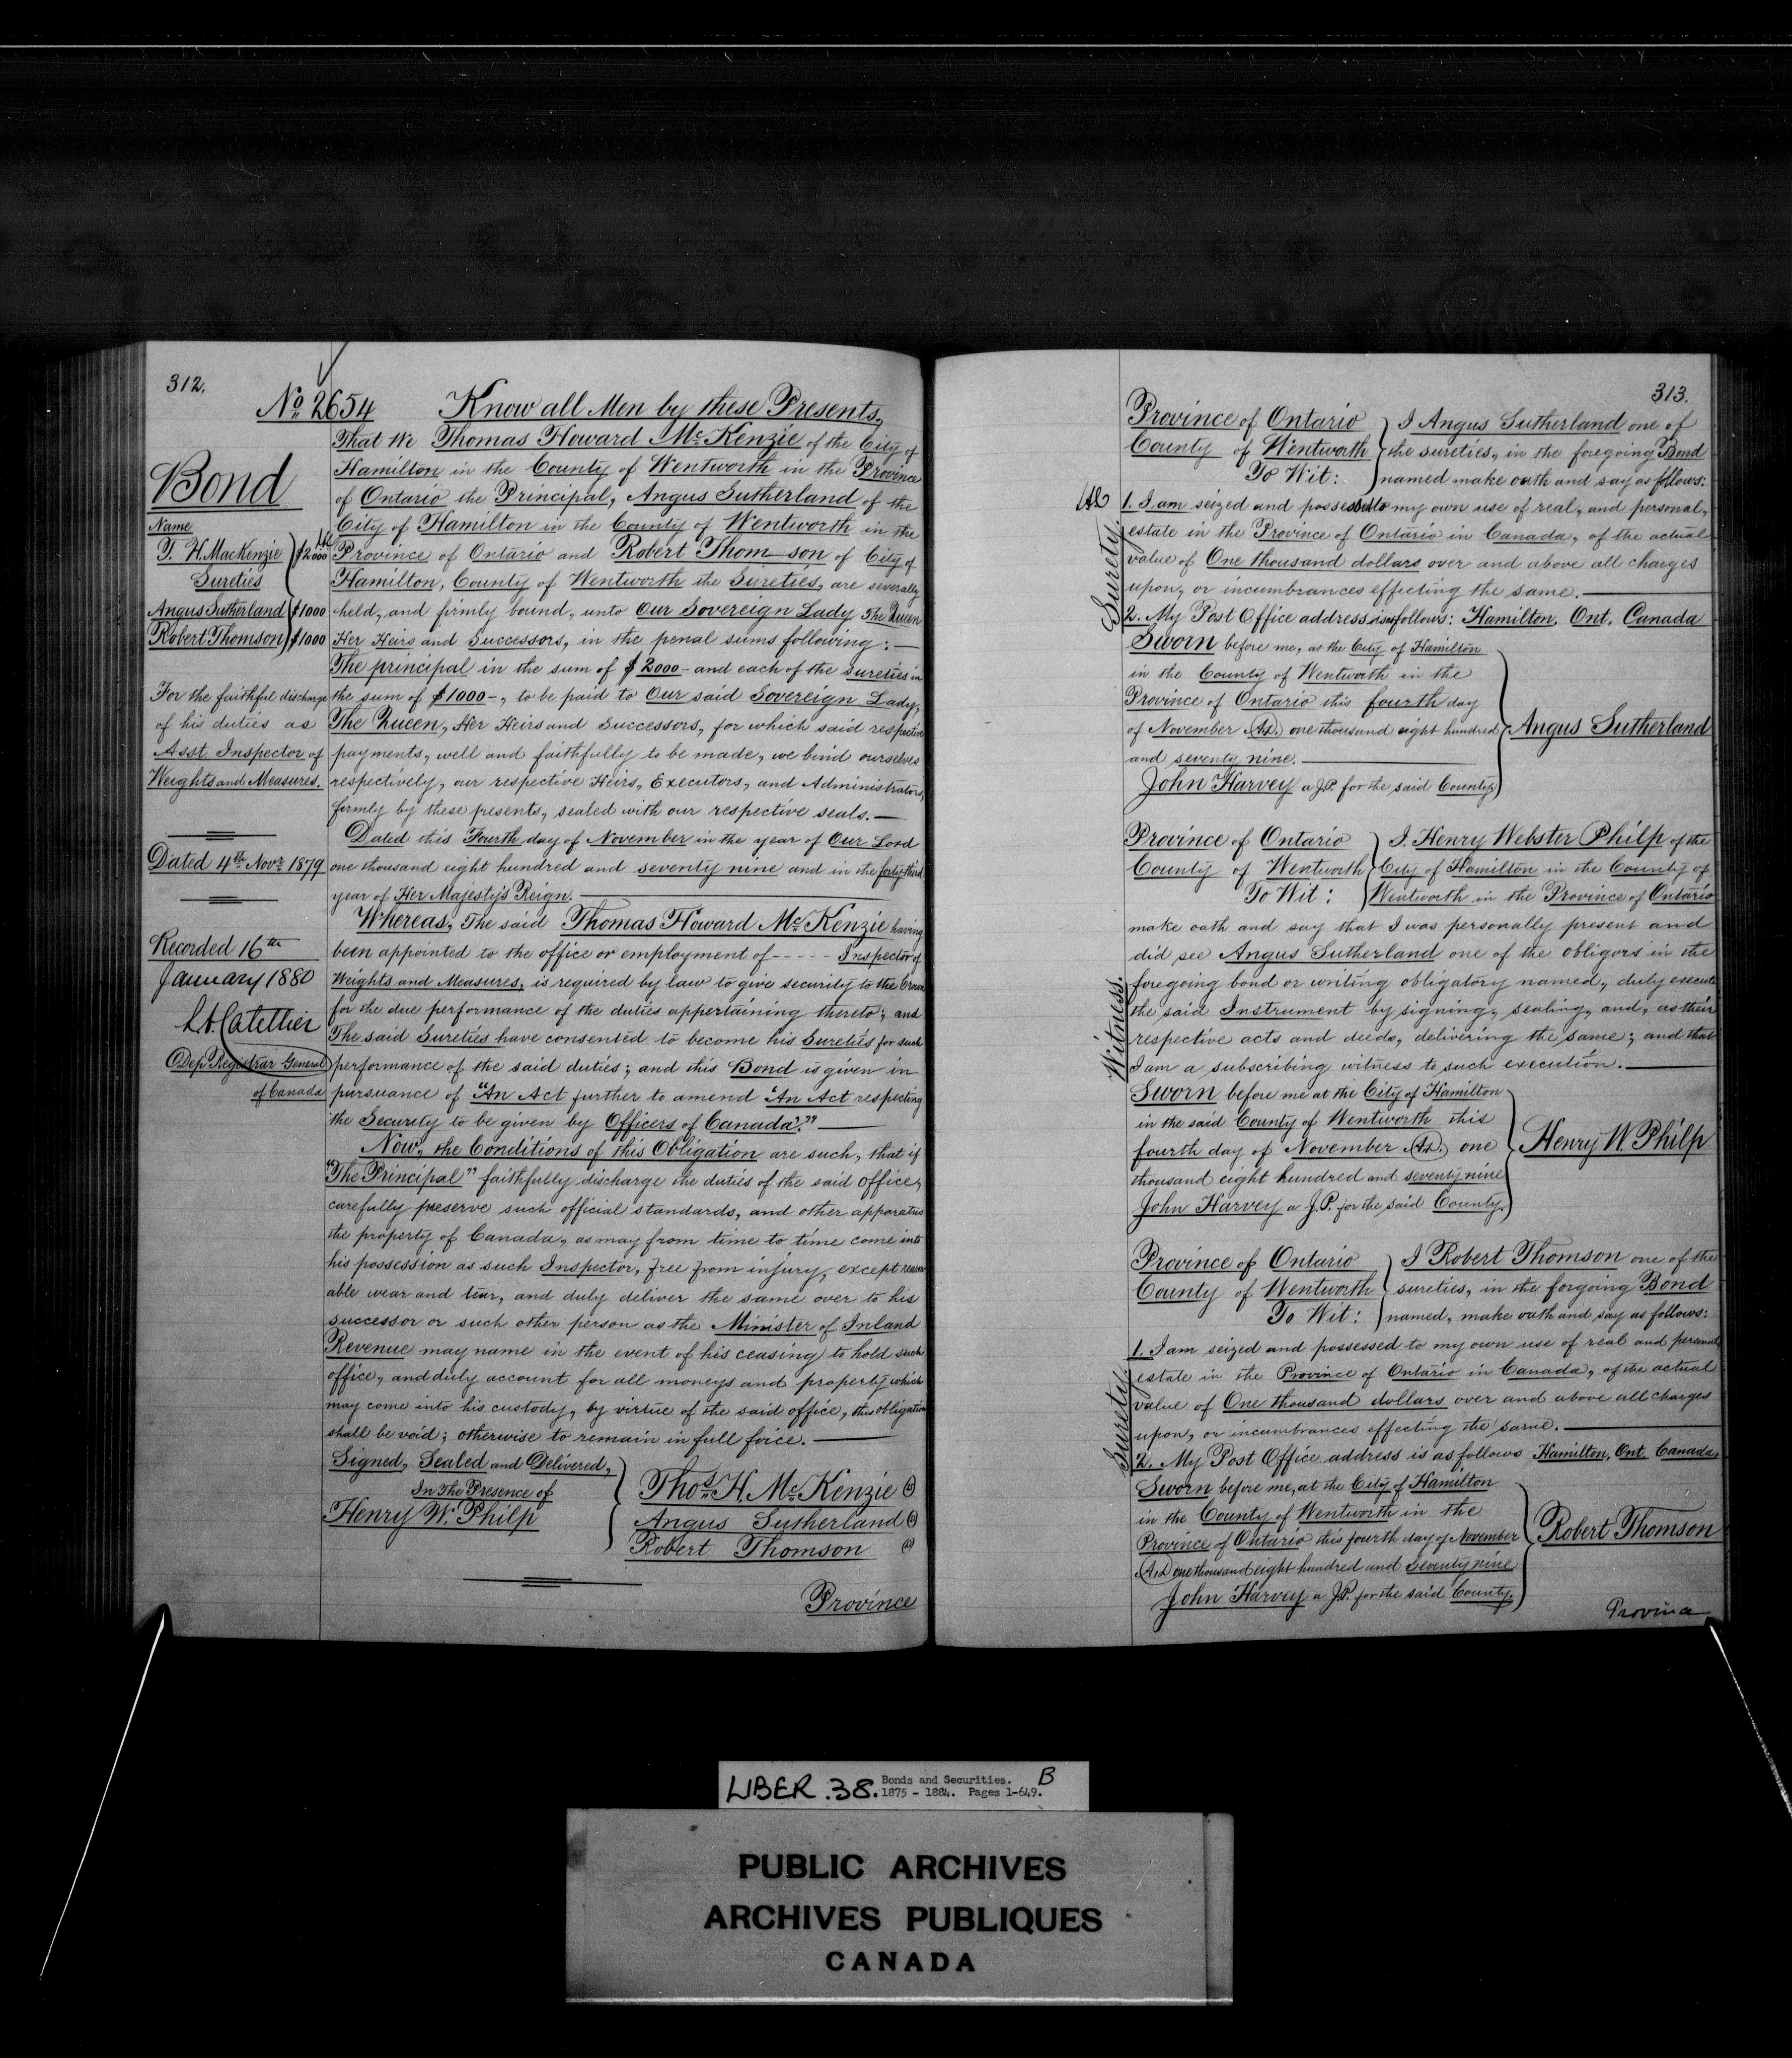 312.
No 2654 Know all Men by these Presents,
Bond
Name
T. H. MacKenzie $2000
Sureties
Angus Sutherland $1000
Robert Thomson $1000
For the faithful discharge
of his duties as
Asst. Inspector of
Weights and Measures.
Dated 4th Novr 1879
Recorded 16th
January 1880
L. A. Catellier
Depy Registrar General
of Canada
That We Thomas Howard McKenzie of the City of
Hamilton in the County of Wentworth in the Province
of Ontario the Principal, Angus Sutherland of the
City of Hamilton in the County of Wentworth in the
Province of Ontario and Robert Thom—son of City of
Hamilton, County of Wentworth the Sureties, are severally
held, and firmly bound, unto Our Sovereign Lady The Queen
Her Heirs and Successors, in the penal sums following: —
The principal in the sum of $2000 - and each of the sureties in
the sum of $1000 -, to be paid to Our said Sovereign Lady,
The Queen, Her Heirs and Successors, for which said respective
payments, well and faithfully to be made, we bind ourselves
respectively, our respective Heirs, Executors, and Administrators,
firmly by these presents, sealed with our respective seals. —
Dated this Fourth day of November in the year of Our Lord
one thousand eight hundred and seventy nine and in the forty third
year of Her Majesty's Reign. —
Whereas, The said Thomas Howard McKenzie having
been appointed to the office or employment of - - - - - Inspector of
Weights and Measures, is required by law to give security to the Crown
for the due performance of the duties appertaining thereto; and
The said Sureties have consented to become his Sureties for such
performance of the said duties; and this Bond is given in
pursuance of "An Act further to amend "An Act respecting
the Security to be given by Officers of Canada." —
Now, the Conditions of this Obligation are such, that if
"The Principal" faithfully discharge the duties of the said office,
carefully preserve such official standards, and other apparatus
the property of Canada, as may from time to time come into
his possession as such Inspector, free from injury, except reason
able wear and tear, and duly deliver the same over to his
successor or such other person as the Minister of Inland
Revenue may name in the event of his ceasing to hold such
office, and duly account for all moneys and property which
may come into his custody, by virtue of the said office, this obligation
shall be void; otherwise to remain in full force. —
Signed, Sealed and Delivered,
In The Presence of
Henry W. Philp
Thos H. McKenzie
Angus Sutherland
Robert Thomson
Province
313.
Province of Ontario
County of Wentworth
To Wit:
I Angus Sutherland one of
the sureties, in the foregoing Bond
named make oath and say as follows:
Surety.
1. I am seized and possessed to my own use of real, and personal,
estate in the Province of Ontario in Canada, of the actual
value of One thousand dollars over and above all charges
upon, or incumbrances effecting the same. —
2. My Post Office address is as follows: Hamilton, Ont. Canada
Sworn before me, at the City of Hamilton
in the County of Wentworth in the
Province of Ontario this fourth day
of November A.D. one thousand eight hundred
and seventy nine. —
John Harvey a J.P. for the said County
Angus Sutherland
Province of Ontario
County of Wentworth
To Wit:
I, Henry Webster Philp of the
City of Hamilton in the County of
Wentworth in the Province of Ontario
Witness.
make oath and say that I was personally present and
did see Angus Sutherland one of the obligors in the
foregoing bond or writing obligatory named, duly execute
the said Instrument by signing, sealing, and, as their
respective acts and deeds, delivering the same; and that
I am a subscribing witness to such execution. —
Sworn before me at the City of Hamilton
in the said County of Wentworth this
fourth day of November A.D. one
thousand eight hundred and seventy nine
John Harvey a J.P. for the said County.
Henry W. Philp
Province of Ontario
County of Wentworth
To Wit:
I Robert Thomson one of the
sureties, in the forgoing Bond
named, make oath and say as follows:
Surety
1. I am seized and possessed to my own use of real and personal
estate in the Province of Ontario in Canada, of the actual
value of One thousand dollars over and above all charges
upon, or incumbrances effecting the same. —
2. My Post Office address is as follows Hamilton, Ont. Canada,
Sworn before me, at the City of Hamilton
in the County of Wentworth in the
Province of Ontario this fourth day of November
A.D one thousand eight hundred and Seventy nine
John Harvey a J.P. for the said County.
Robert Thomson
Province
LIBER. 38. Bonds and Securities. B
1875 - 1884. Pages 1-649.
PUBLIC ARCHIVES
ARCHIVES PUBLIQUES
CANADA